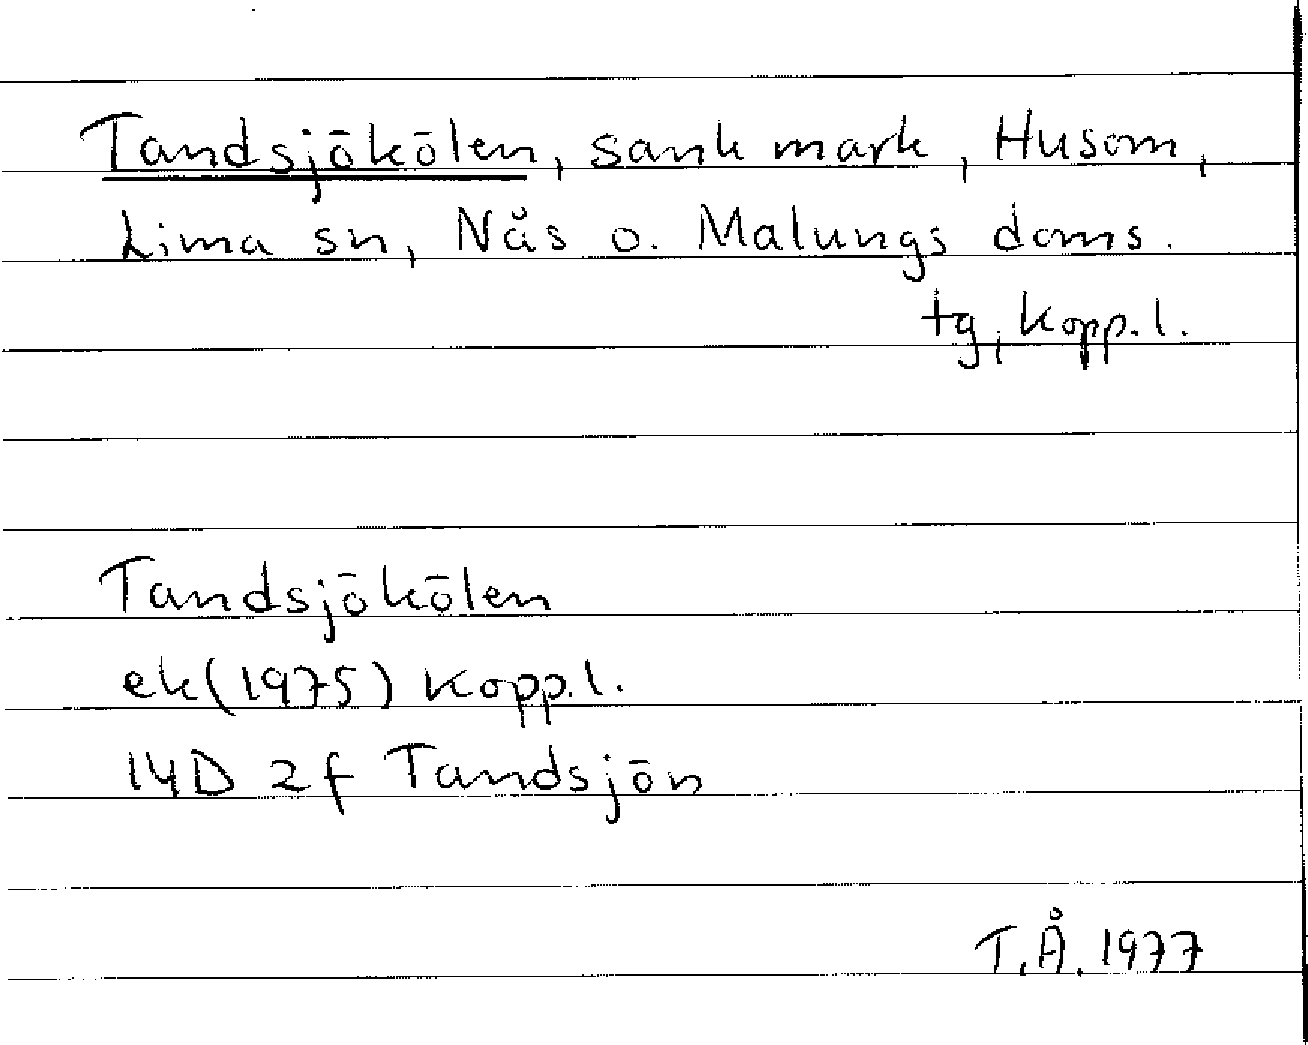 Tandsjökölen, sank mark, Husom,
Lima sn, Nås o. Malungs doms.
tg, Kopp.l.
Tandsjökölen
ek(1975) Kopp.l.
14D 2f Tandsjön
T.Å. 1977